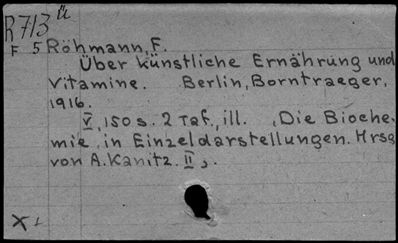 R713 ü
F 5 Röhmann, F.
Über künstliche Ernährung und
Vitamine. Berlin, Borntraeger,
1916.
V, 150 s. 2 Taf., ill. ,Die Bioche-
mie in Einzeldarstellungen. Hrsg
von A. Kanitz. II,.
X